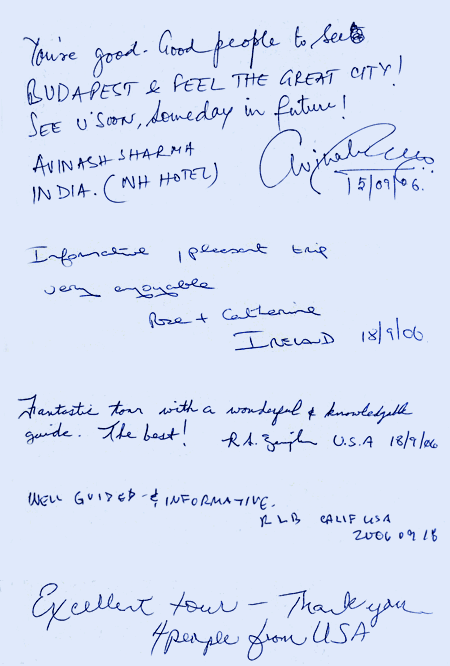 You're good. Good people to see
BUDAPEST & FEEL THE GREAT CITY!
SEE U SOON, Someday in future!
AVINASH SHARMA
INDIA. (NH HOTEL)
15/09/06.
Informative, pleasant trip
very enjoyable
Rose + Catherine
IRELAND 18/9/06
Fantastic tour with a wonderful & knowledgable
guide. The best! R.A. U.S.A 18/9/06
WELL GUIDED & INFORMATIVE.
RLB CALIF USA
2006 09 18
Excellent tour – Thank you
4 people from USA